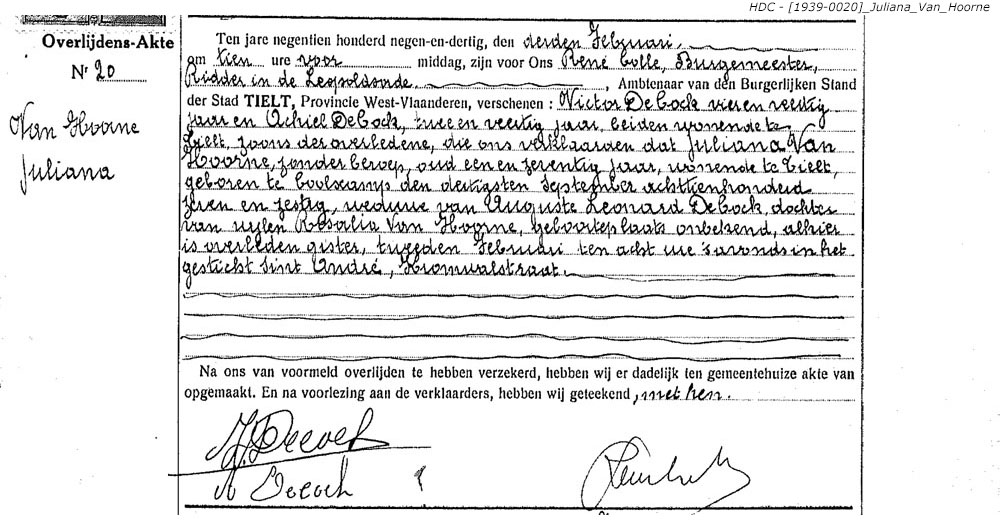 HDC - [1939-0020]_Juliana_Van_Hoorne
Overlijdens-Akte
Nr 20
Van Hoorne
Juliana
Ten jare negentien honderd negen-en-dertig, den derden Februari,
om tien ure voor middag, zijn voor Ons René Colle, Burgemeester,
Ridder in de Leopoldsorde, Ambtenaar van den Burgerlijken Stand
der Stad TIELT, Provincie West-Vlaanderen, verschenen : Victor De Cock vier en veertig
jaar en Achiel De Cock, twee en veertig jaar, beiden wonende te
Tielt, zoons der overledene, die ons verklaarden dat Juliana Van
Hoorne, zonder beroep, oud een en zeventig jaar, wonende te Tielt,
geboren te Coolscamp den dertigsten September achttienhonderd
zeven en zestig, weduwe van Auguste Leonard De Cock, dochter
van wijlen Rosalia Van Hoorne, geboorteplaats onbekend, alhier
is overleden gister, tweeden Februari ten acht ure 's avonds in het
gesticht Sint André, Kromwalstraat.
Na ons van voormeld overlijden te hebben verzekerd, hebben wij er dadelijk ten gemeentehuize akte van
opgemaakt. En na voorlezing aan de verklaarders, hebben wij geteekend, met hen.
Decock
Decock